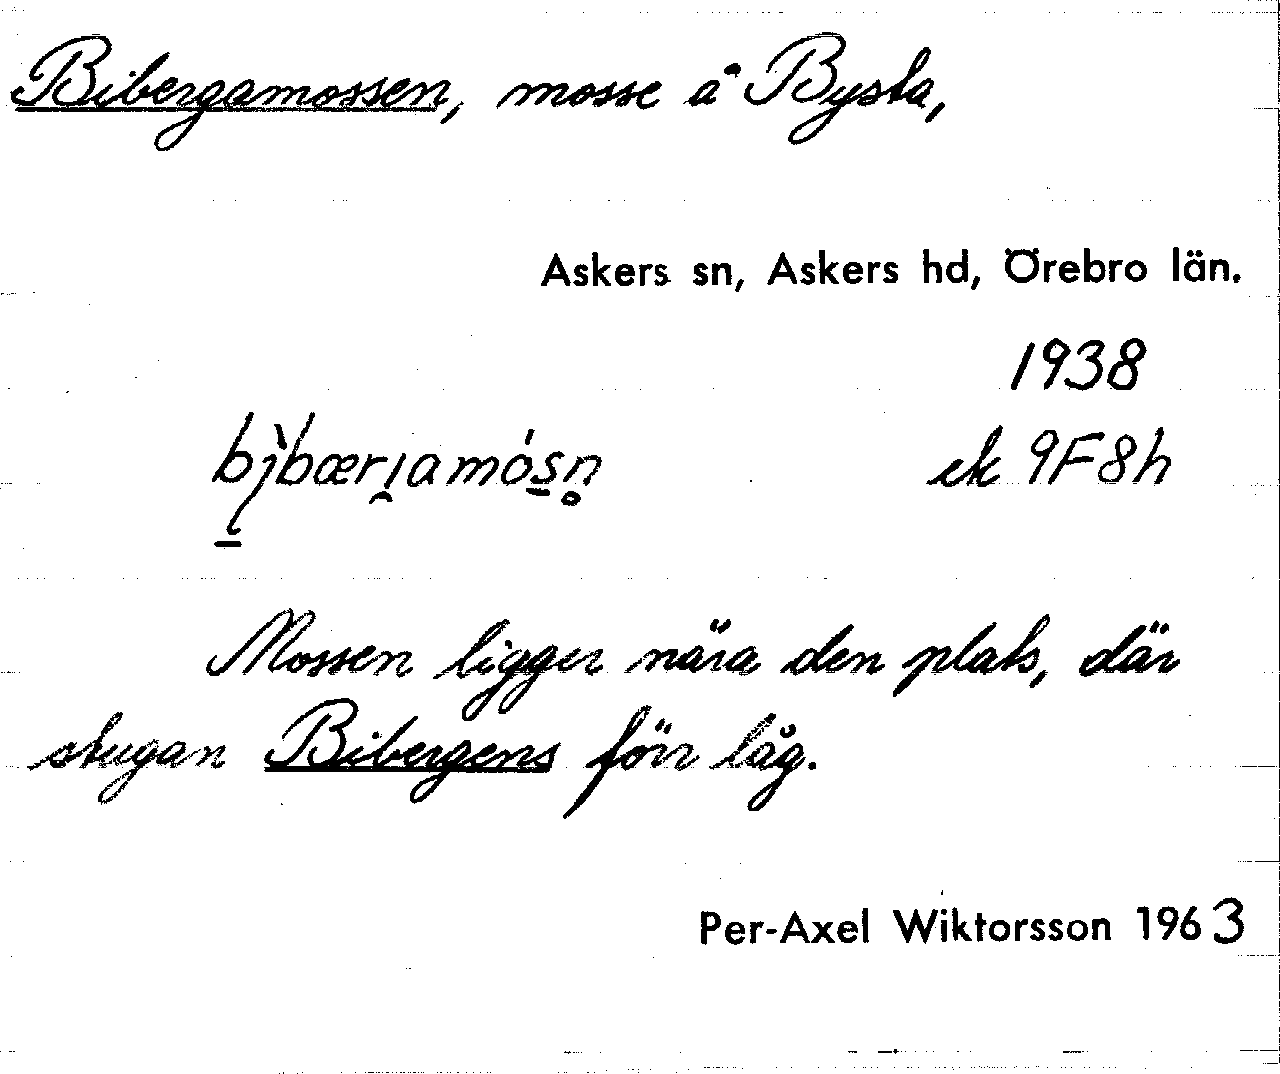 Bibergamossen, mosse å Bysta,
Askers sn, Askers hd, Örebro län.
1938
bì̱bærı̯amós̱n̥ ek 9F8h
Mossen ligger nära den plats, där
stugan Bibergens förr låg.
Per-Axel Wiktorsson 1963